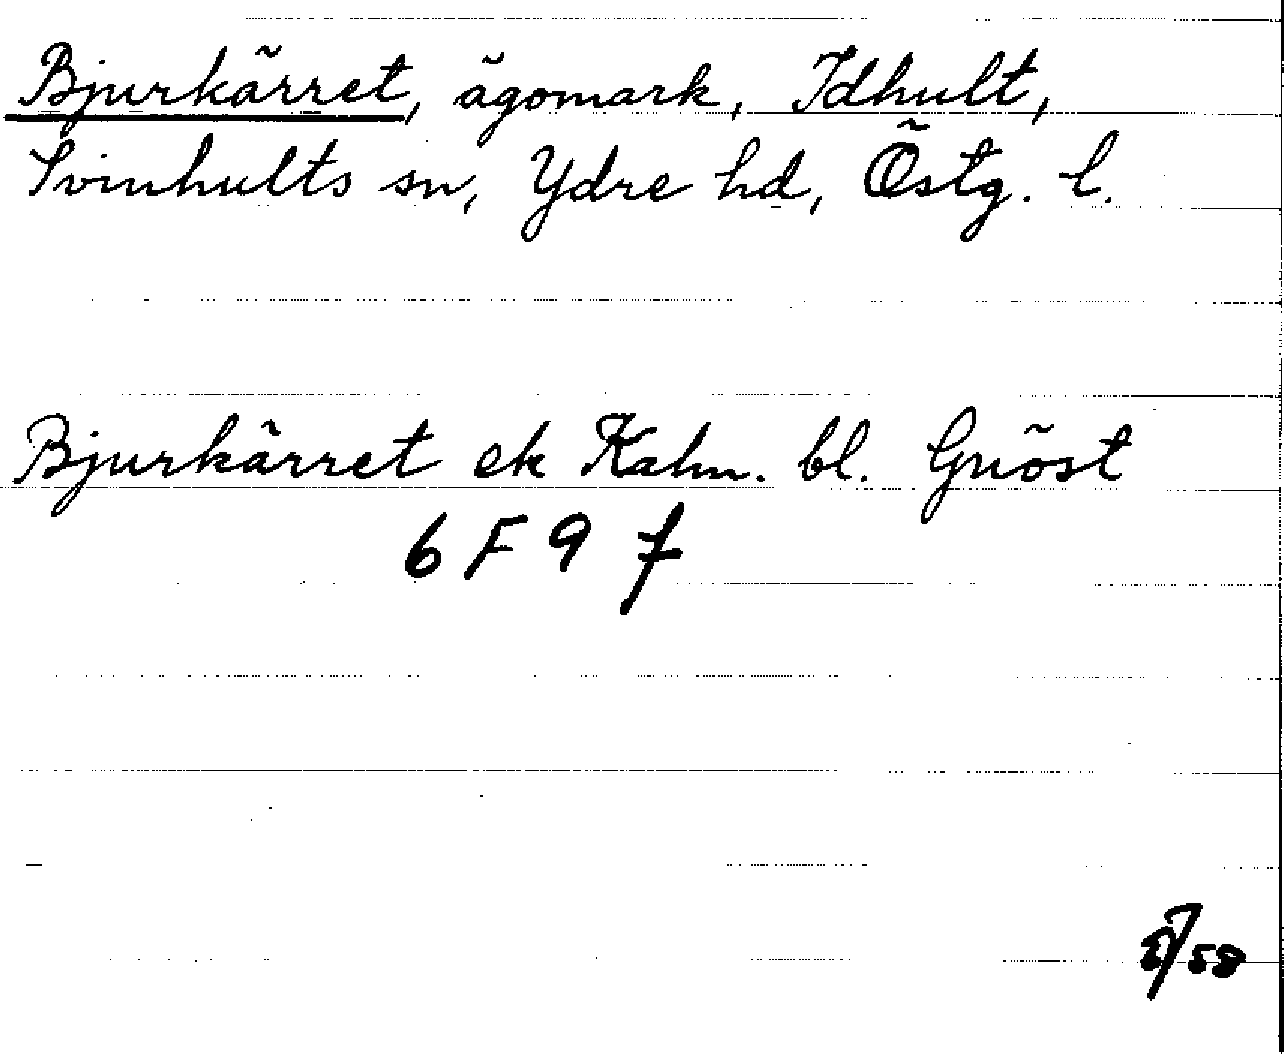 Bjurkärret, ägomark, Idhult,
Svinhults sn, Ydre hd, Östg. l.
Bjurkärret ek Kalm. bl. Gnöst
6 F 9 f
/58